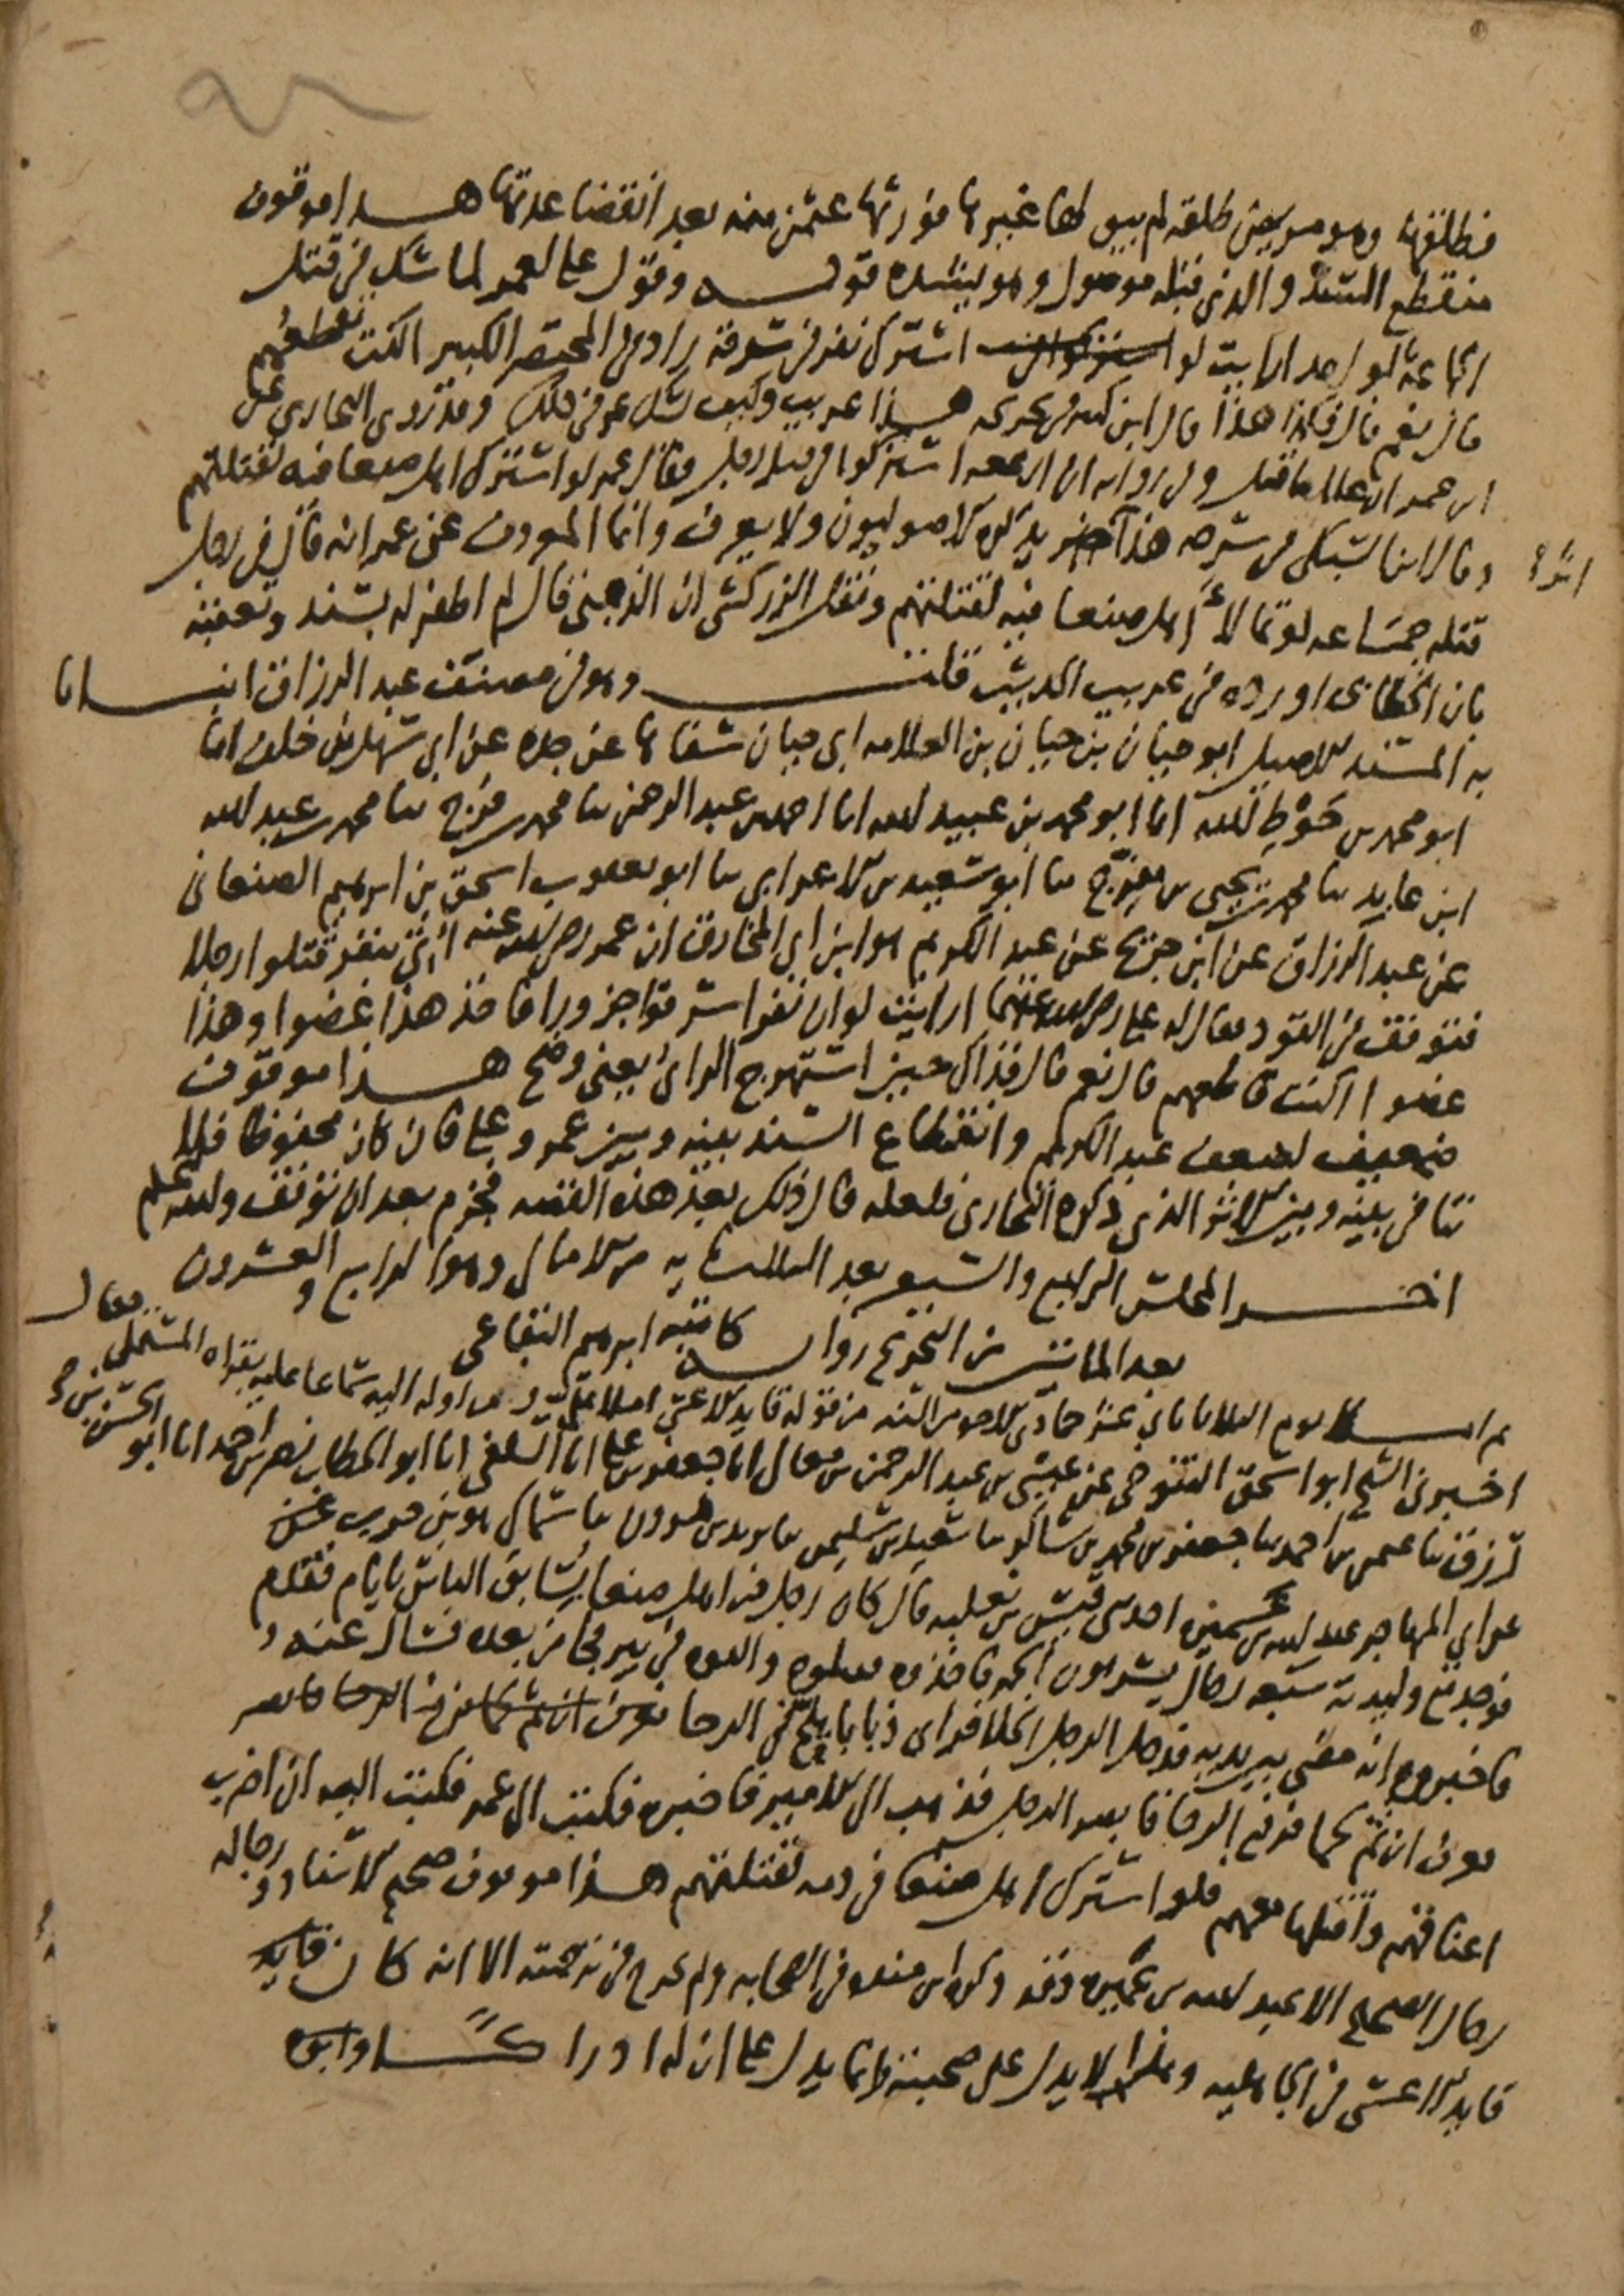 فطلقها وهو مريض طلقة لم يبق لها غيرها فورثها عثمن منه بعد انقضا عدتها هــذا موقوف
منقطع السند والذي قبله موصول وهو يشده قولــه وقول علي لعمر لما شك في قتل
الجماعة بالواحد ارايت لو اشترك نفر في سرقة زاد في المختصر الكبير اكنت تقطعهم
قال نعم قال فكذا هذا قال ابن كثير في تخريجه هــذا غريب وكيف يشك عمر في ذلك وقد روى البخاري عن
ابن عمر ان غلاما قتل وفي رواية ان اربعة اشتركوا في قتل رجل فقال عمر لو اشترك اهل صنعا فيه لقتلتهم
وقال ابن السبكي في شرحه هذا يذكره الاصوليون ولا يعرف وانما المعروف عن عمر انه قال في رجل
اثر
قتله جماعه لو تمالأ اهل صنعا فيه لقتلتهم ونقل الزركشي ان الذهبي قال لم اظفر له بسند وتعقبه
بان الخطابي اورده في غريب الحديث قلتــ وهو في مصنف عبد الرزاق انبــانا
به المسند الاصيل ابو حيان بن حيان بن العلامه ابي حيان شفاها عن جده عن ابي سهل بن خلف انا
ابو محمد بن حوط الله انا ابو محمد بن عبيد الله انا احمد بن عبد الرحمن نا محمد بن فرج نا محمد بن عبد الله
ابن عابد نا محمد بن يحيى بن مفرج نا ابو سعيد بن الاعرابي نا ابو يعقوب اسحق بن ابرهيم الصنعاني
عن عبد الرزاق عن ابن جريج عن عبد الكريم هو ابن ابي المخارق ان عمر رضي الله عنه اتي بنفر قتلوا رجلا
فتوقف في القود فقال له علي رضي الله عنهما ارايت لو ان نفرا سرقوا جزورا فاخذ هذا عضوا وهذا
عضوا اكنت قاطعهم قال نعم قال فذاك حين استهرج الراي يعني وضح هــذا موقوف
ضعيف لضعف عبد الكريم وانقطاع السند بينه وبين عمر وعلي فان كان محفوظا فلا
تنافي بينه وبين الاثر الذي ذكره البخاري فلعله قال ذلك بعد هذه القصه فجزم بعد ان توقف والله اعلم
اخــر المجلس الرابع والسبعين بعد الثلثمايه من الامالي وهو الرابع والعشرون
بعد المائتين من التخريج روايــه كاتبه ابرهيم البقاعي
ثم امــلا يوم الثلاثا ثاني عشر جمادى الاخر من السنه من قوله قايد الاعمى املا علي من اوله اليه سماعا عليه بقراة المستملي فقال
اخبرني الشيخ ابو اسحق التنوخي عن عيسى بن عبد الرحمن بن معالي انا جعفر بن علي انا السلفي انا ابو الخطاب نصر بن احمد انا ابو الحسن بن
رزق نا عمر بن احمد نا جعفر بن محمد بن شاكر نا سعيد بن سليمن نا يزيد بن هرون نا سماك هو بن حرب عن
عن ابي المهاجر عبد الله بن عميره احد بني قيس بن ثعلبه قال كان رجل من اهل صنعا يسابق الناس بايام فقدم
فوجد مع وليدته سبعه رجال يشربون الخمر فاخذوه فقتلوه والقوه في بير فجا من بعده فسال عنه
فاخبروه انه مضى بين يديه فدخل الرجل الخلا فراى ذبابا يلج في الرحا
فعرف ان ثم لحما فرفع الرحا فابصر الرجل فذهب الى الامير فاخبره فكتب الى عمر فكتب اليه ان اضرب
اعناقهم واقتلها معهم فلو اشترك اهل صنعا في دمه لقتلتهم هــذا موقوف صحيح الاسناد ورجاله
رجال الصحيح الا عبد الله بن عميره وقد ذكره ابن منده في الصحابه ولم يخرج في ترجمته الا انه كان قايد
قايد الاعشى في الجاهليه وهذا لا يدل على صحبته وانما يدل على ان له ادراكــا وابوه